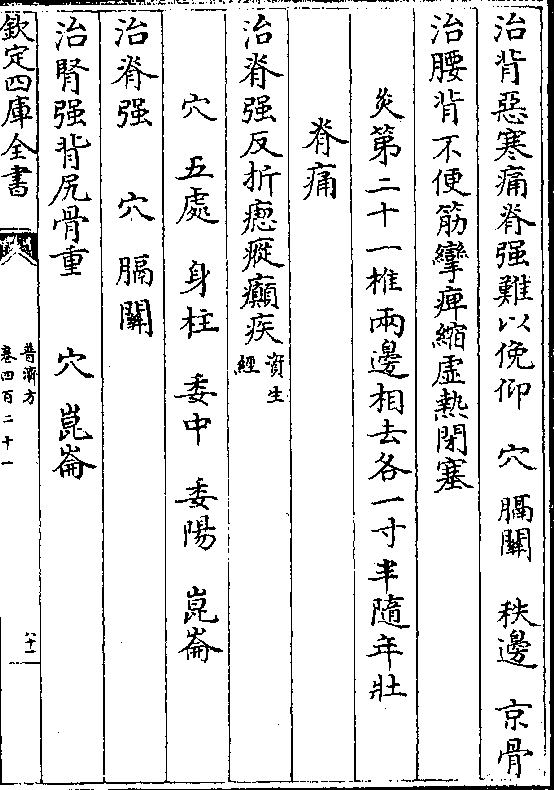 治背惡寒痛脊强難以俛仰 穴 膈關 秩邊 京骨
治腰背不便筋攣痺縮虚熱閉塞
灸第二十一椎兩邊相去各一寸半隨年壯
脊痛
治脊强反折瘛瘲癲疾資生經
穴 五處 身柱 委中 委陽 崑崙
治脊强 穴 膈關
治腎强背尻骨重 穴 崑崙
欽定四庫全書
普濟方
卷四百二十一